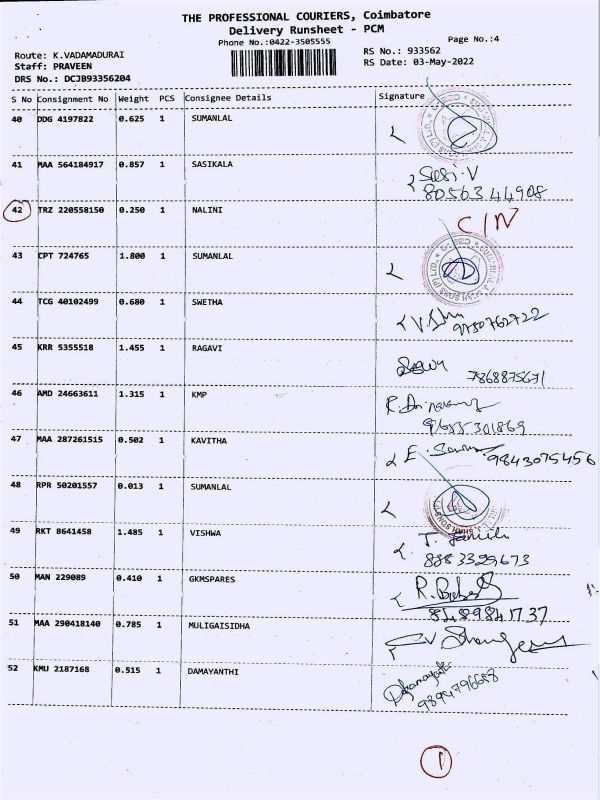 THE PROFESSIONAL COURIERS, Coimbatore
Delivery Runsheet - PCM
Phone No.:0422-3505555
Page No.:4
Route: K.VADAMADURAI
RS No.: 933562
Staff: PRAVEEN
RS Date: 03-May-2022
DRS No.: DCJB93356204
S No Consignment No Weight PCS Consignee Details Signature
40 DDG 4197822 0.625 1 SUMANLAL
41 MAA 564184917 0.857 1 SASIKALA
Sasi.V
80563 44908
42 TRZ 220558150 0.250 1 NALINI
C/N
43 CPT 724765 1.800 1 SUMANLAL
44 TCG 40102499 0.680 1 SWETHA
9750762722
45 KRR 5355518 1.455 1 RAGAVI
7868875671
46 AMD 24663611 1.315 1 KMP
9655301869
47 MAA 287261515 0.502 1 KAVITHA
9843075456
48 RPR 50201557 0.013 1 SUMANLAL
49 RKT 8641458 1.485 1 VISHWA
8883329673
50 MAN 229089 0.410 1 GKMSPARES
8489841737
51 MAA 290418140 0.785 1 MULIGAISIDHA
52 KMU 2187168 0.515 1 DAMAYANTHI
Dhamayanthi
9894796688
1